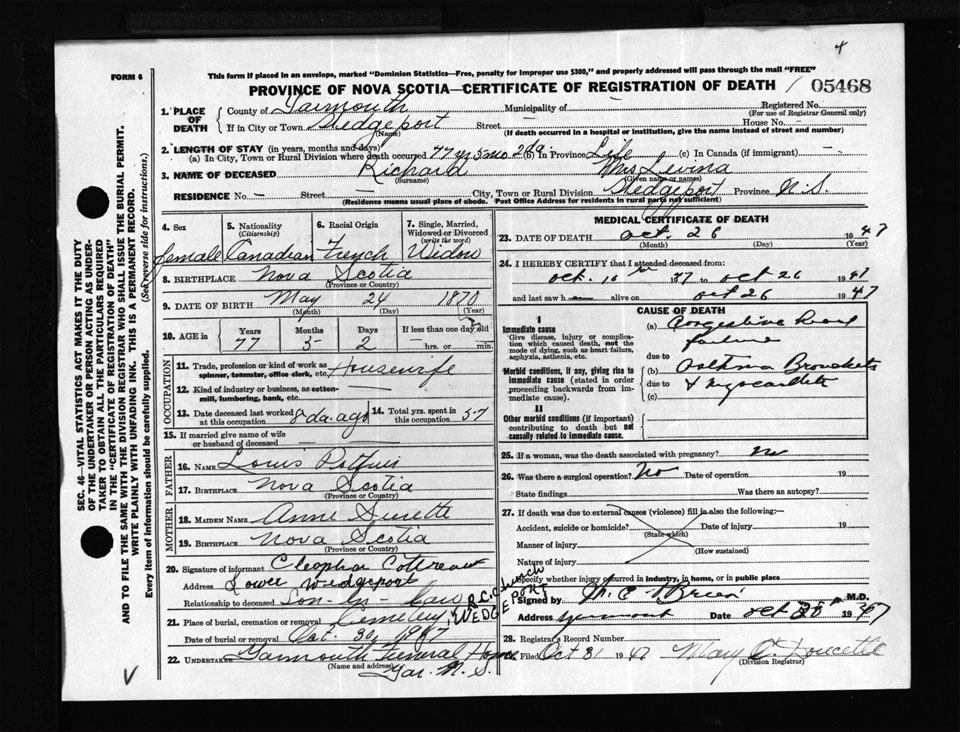 4
FORM 6
This form if placed in an envelope, marked "Dominion Statistics—Free, penalty for improper use $300," and properly addressed will pass through the mail "FREE"
PROVINCE OF NOVA SCOTIA—CERTIFICATE OF REGISTRATION OF DEATH / 05468
1. PLACE OF DEATH
County of Yarmouth Municipality of — Registered No.
(For use of Registrar General only)
If in City or Town Wedgeport Street — House No. —
(Name) (If death occurred in a hospital or institution, give the name instead of street and number)
2. LENGTH OF STAY (in years, months and days)
(a) In City, Town or Rural Division where death occurred 77 yrs 5 mo 2 da (b) in Province Life (c) In Canada (if immigrant) —
3. NAME OF DECEASED Richard Mrs Levina
(Surname) (Given name or names)
RESIDENCE No. — Street — City, Town or Rural Division Wedgeport Province N.S.
(Residence means usual place of abode. Post Office Address for residents in rural parts not sufficient)
4. Sex
female
5. Nationality
(Citizenship)
Canadian
6. Racial Origin
French
7. Single, Married, Widowed or Divorced
(write the word)
Widow
8. BIRTHPLACE Nova Scotia
(Province or Country)
9. DATE OF BIRTH May 24 1870
(Month) (Day) (Year)
10. AGE in
Years Months Days If less than one day old
77 5 2 — hrs. or — min.
OCCUPATION
11. Trade, profession or kind of work as spinner, teamster, office clerk, etc. Housewife
12. Kind of industry or business, as cotton-mill, lumbering, bank, etc.
13. Date deceased last worked at this occupation 8 da. ago
14. Total yrs. spent in this occupation 57
15. If married give name of wife or husband of deceased
FATHER
16. NAME Louis Pothier
17. BIRTHPLACE Nova Scotia
(Province or Country)
MOTHER
18. MAIDEN NAME Anne Surette
19. BIRTHPLACE Nova Scotia
(Province or Country)
20. Signature of informant Cleophas Cottreau
Address Lower Wedgeport
Relationship to deceased Son-in-law
21. Place of burial, cremation or removal Cemetery, R.C. Church WEDGEPORT
Date of burial or removal Oct. 30, 1947
22. UNDERTAKER Yarmouth Funeral Home
(Name and address) Yar. N.S.
MEDICAL CERTIFICATE OF DEATH
23. DATE OF DEATH Oct. 26 1947
(Month) (Day) (Year)
24. I HEREBY CERTIFY that I attended deceased from:
Oct. 10 1947 to Oct 26 1947
and last saw h alive on Oct 26 1947
CAUSE OF DEATH
I
Immediate cause
Give disease, injury or complication which caused death, not the mode of dying, such as heart failure, asphyxia, asthenia, etc.
(a) Congestive heart failure
due to
Morbid conditions, if any, giving rise to immediate cause (stated in order proceeding backwards from immediate).
(b) Asthma Bronchitis
due to & Myocarditis
(c)
II
Other morbid conditions (if important) contributing to death but not causally related to immediate cause.
25. If a woman, was the death associated with pregnancy? no
26. Was there a surgical operation? No Date of operation 19
State findings Was there an autopsy?
27. If death was due to external causes (violence) fill in also the following:—
Accident, suicide or homicide? Date of injury 19
(State which)
Manner of injury
(How sustained)
Nature of injury
Specify whether injury occurred in industry, in home, or in public place
Signed by M. C. O'Brien M.D.
Address Yarmouth Date Oct 28th 1947
28. Registrar's Record Number
Filed Oct 31 1947 Mary E. Doucette
(Division Registrar)
SEC. 46—VITAL STATISTICS ACT MAKES IT THE DUTY OF THE UNDERTAKER OR PERSON ACTING AS UNDERTAKER TO OBTAIN ALL THE PARTICULARS REQUIRED IN THE "CERTIFICATE OF REGISTRATION OF DEATH"
AND TO FILE THE SAME WITH THE DIVISION REGISTRAR WHO SHALL ISSUE THE BURIAL PERMIT.
WRITE PLAINLY WITH UNFADING INK. THIS IS A PERMANENT RECORD.
Every item of information should be carefully supplied. (See reverse side for instructions.)